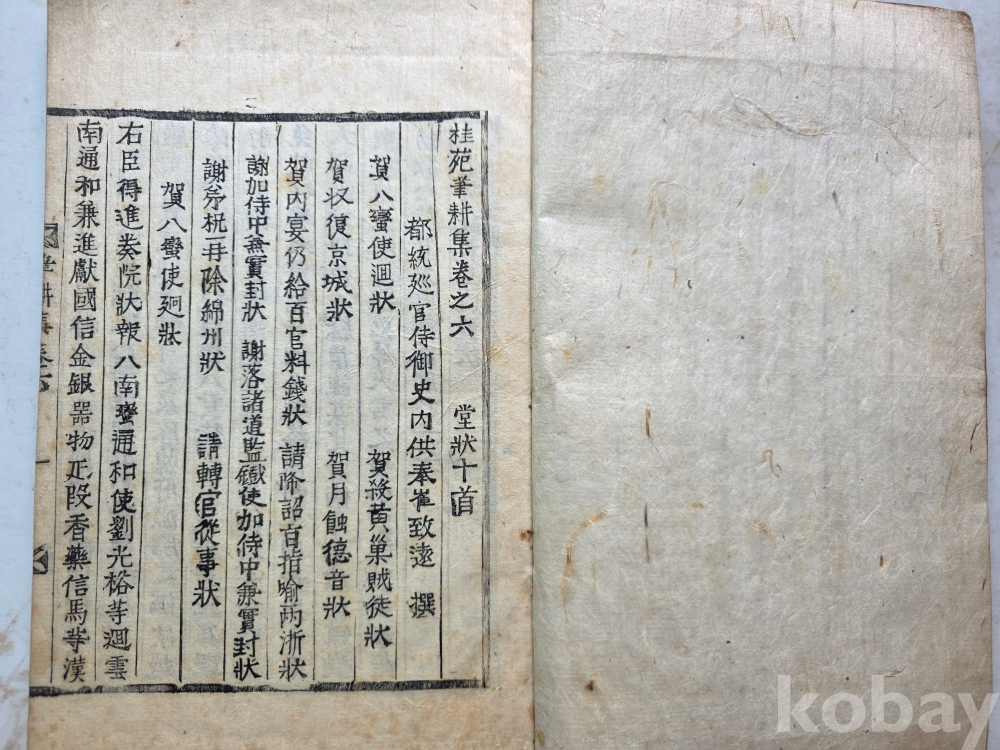 桂苑筆耕集卷之六 堂狀十首
都統廵官侍御史內供奉崔致遠 撰
賀八蠻使迴狀 賀殺黃巢賊徒狀
賀收復京城狀 賀月蝕德音狀
賀內宴仍給百官料錢狀 請降詔旨指喻兩浙狀
謝加侍中兼實封狀 謝落諸道監鐵使加侍中兼實封狀
謝弟柷再除綿州狀 請轉官從事狀
賀八蠻使廻狀
右臣得進奏院狀報八南蠻通和使劉光裕等迴雲
南通和兼進獻國信金銀器物疋段香藥信馬等漢
筆耕集卷六 一
kobay